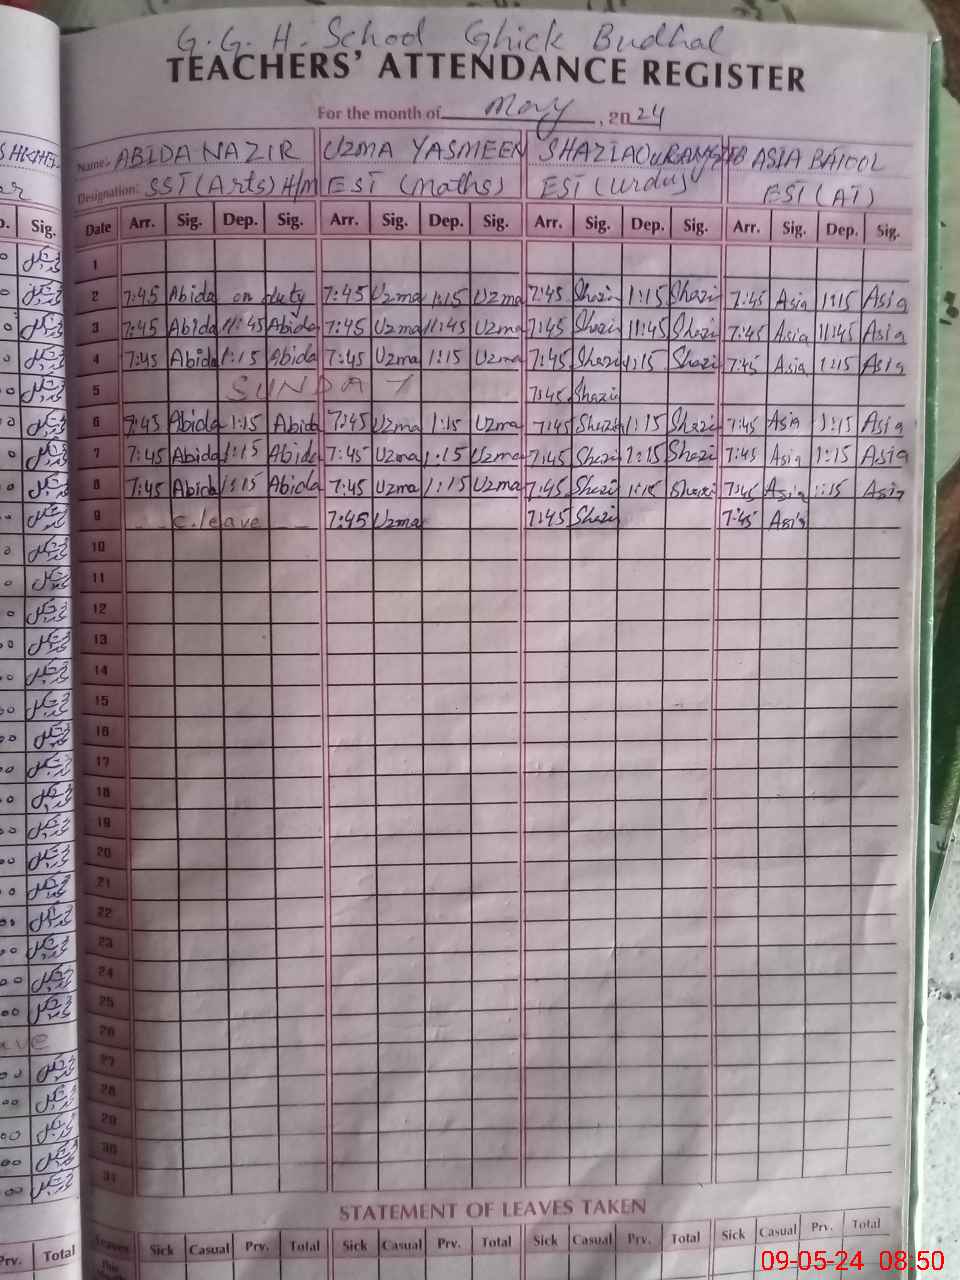 G.G.H.School Ghick Budhal
TEACHERS' ATTENDANCE REGISTER
For the month of May, 2024
Name:- ABIDA NAZIR UZMA YASMEEN SHAZIA ASIA BATOOL
Designation: SST (Arts) H/M EST (maths) EST (urdu) EST (AT)
Date Arr. Sig. Dep. Sig. Arr. Sig. Dep. Sig. Arr. Sig. Dep. Sig. Arr. Sig. Dep. Sig.
1
2 7:45 Abida on duty 7:45 Uzma 1:15 Uzma 7:45 Shazi 1:15 Shazi 7:45 Asia 1:15 Asia
3 7:45 Abida 11:45 Abida 7:45 Uzma 11:45 Uzma 7:45 Shazi 11:45 Shazi 7:45 Asia 11:45 Asia
4 7:45 Abida 1:15 Abida 7:45 Uzma 1:15 Uzma 7:45 Shazi 1:15 Shazi 7:45 Asia 1:15 Asia
5 SUNDAY 7:45 Shazi
6 7:45 Abida 1:15 Abida 7:45 Uzma 1:15 Uzma 7:45 Shazi 1:15 Shazi 7:45 Asia 1:15 Asia
7 7:45 Abida 1:15 Abida 7:45 Uzma 1:15 Uzma 7:45 Shazi 1:15 Shazi 7:45 Asia 1:15 Asia
8 7:45 Abida 1:15 Abida 7:45 Uzma 1:15 Uzma 7:45 Shazi 1:15 Shazi 7:45 Asia 1:15 Asia
9 c.leave 7:45 Uzma 7:45 Shazi 7:45 Asia
10
11
12
13
14
15
16
17
18
19
20
21
22
23
24
25
26
27
28
29
30
31
STATEMENT OF LEAVES TAKEN
Leaves Sick Casual Prv. Total Sick Casual Prv. Total Sick Casual Prv. Total Sick Casual Prv. Total
Prv. Total
09-05-24 08:50